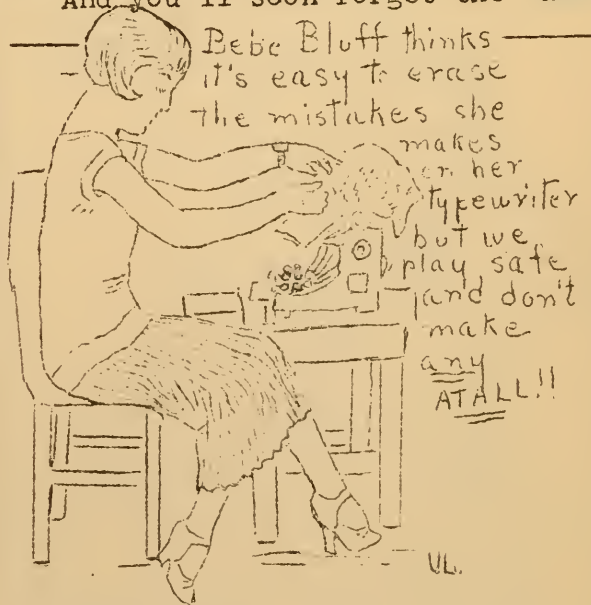 And you'll soon forget the
Bebe Bluff thinks
it's easy to erase
the mistakes she
makes
on her
typewriter
but we
play safe
and don't
make
any
ATALL!!
VL.